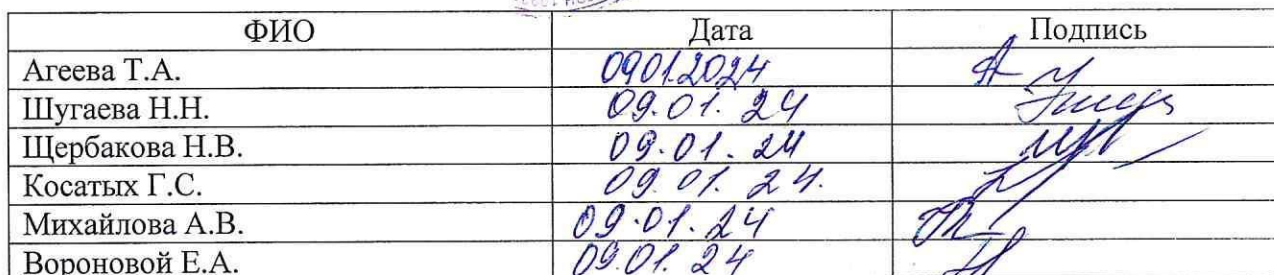 ФИО Дата Подпись
Агеева Т.А. 09.01.2024
Шугаева Н.Н. 09.01.24
Щербакова Н.В. 09.01.24
Косатых Г.С. 09.01.24.
Михайлова А.В. 09.01.24
Вороновой Е.А. 09.01.24